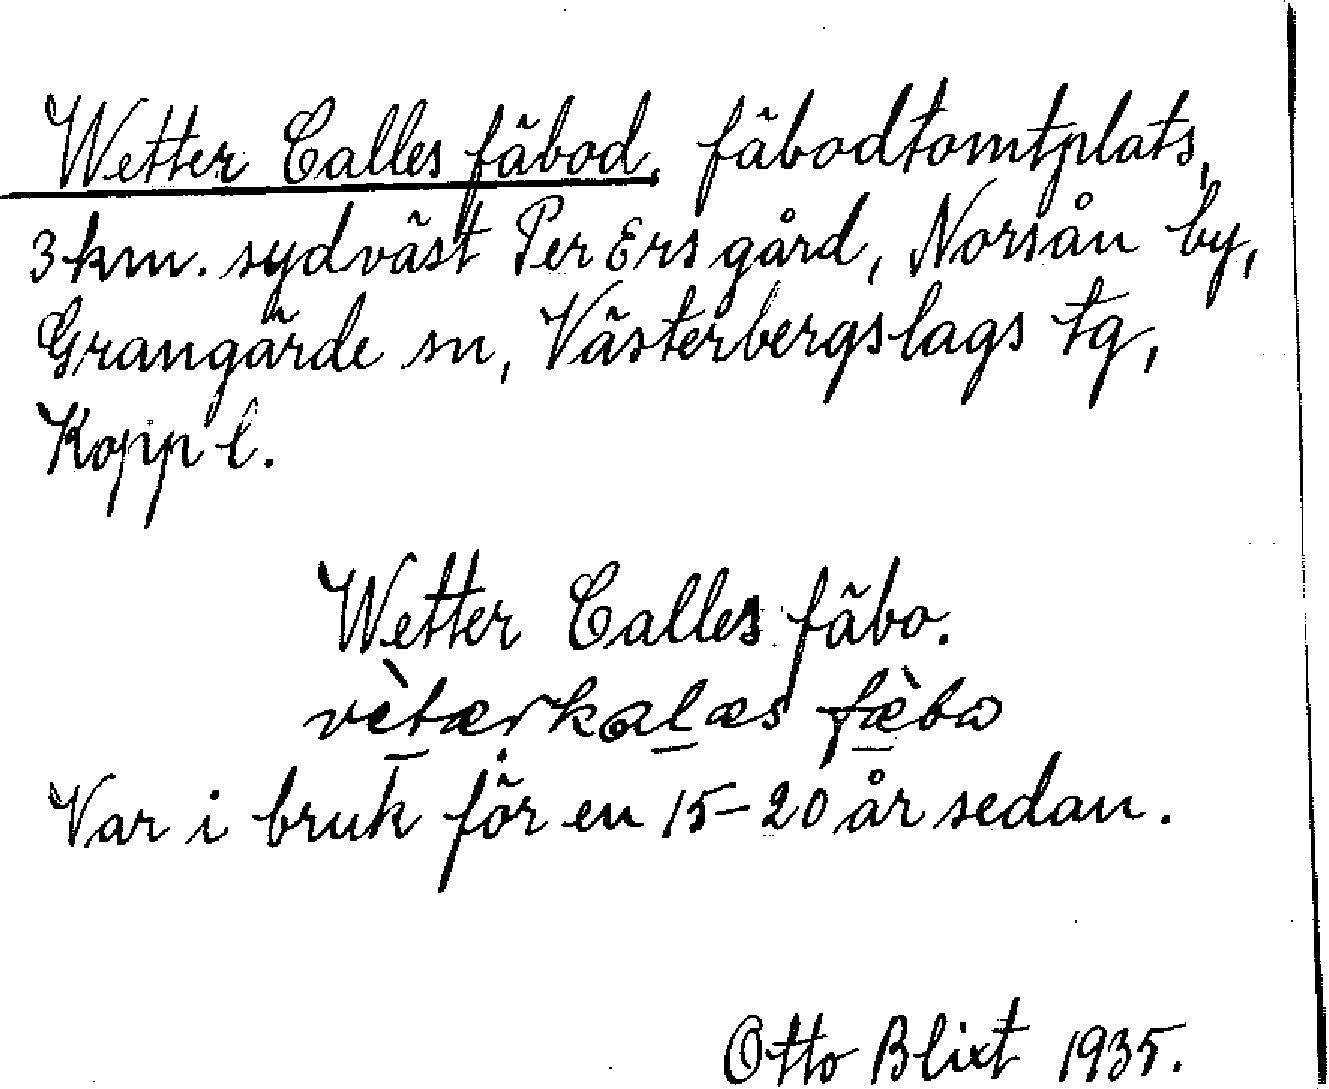 Wetter Calles fäbod, fäbodtomtplats,
3 km. sydväst Per Ers gård, Norsån by,
Grangärde sn, Västerbergslags tg,
Kopp l.
Wetter Calles fäbo.
vètærkalæs fæ̀bω
Var i bruk för en 15-20 år sedan.
Otto Blixt 1935.